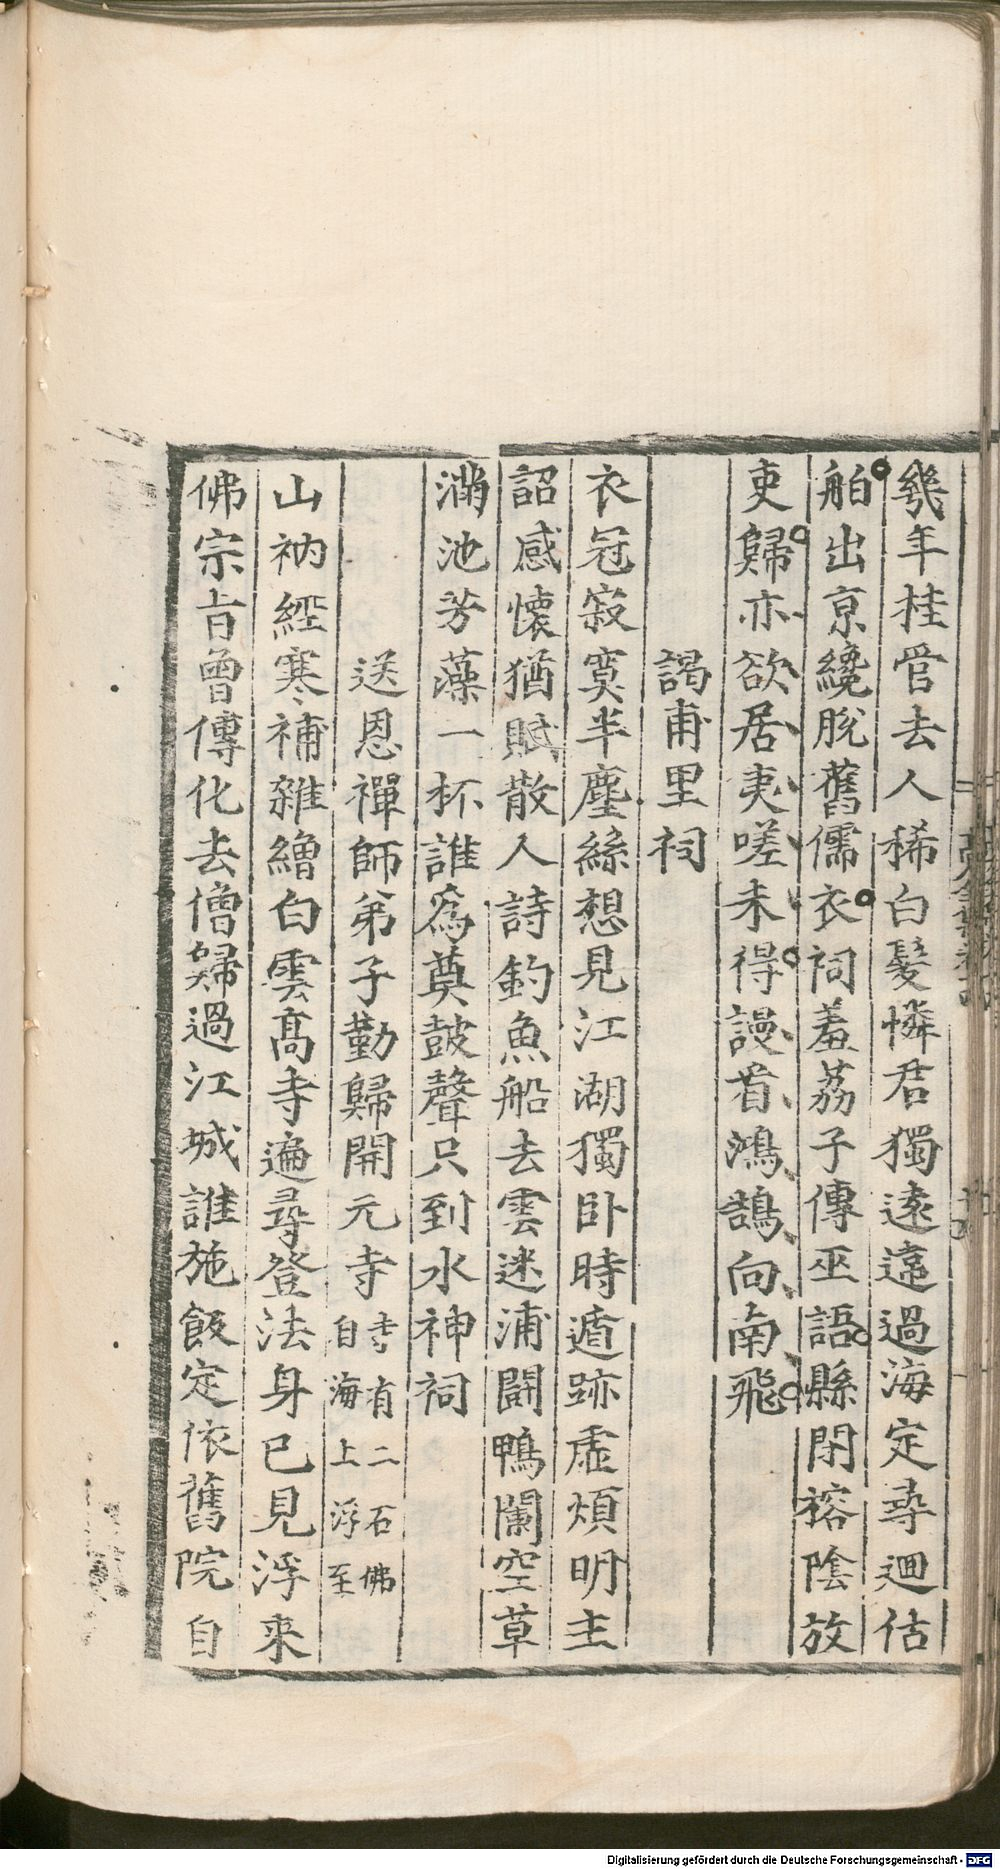 幾年桂管去人稀白髮憐君獨遠違過海定尋迴估
舶出京纔脫舊儒衣祠羞荔子傳巫語縣閉榕陰放
吏歸亦欲居夷嗟未得謾看鴻鵠向南飛
謁甫里祠
衣冠寂寞半塵絲想見江湖獨卧時遁跡虛煩明主
詔感懷猶賦散人詩釣魚船去雲迷浦鬬鴨闌空草
滿池芳藻一杯誰爲奠鼓聲只到水神祠
送恩禪師弟子勤歸開元寺寺有二石佛自海上浮至
山衲經寒補雜繒白雲高寺遍尋登法身已見浮来
佛宗旨曾傳化去僧歸過江城誰施飯定依舊院自
Digitalisierung gefördert durch die Deutsche Forschungsgemeinschaft - DFG